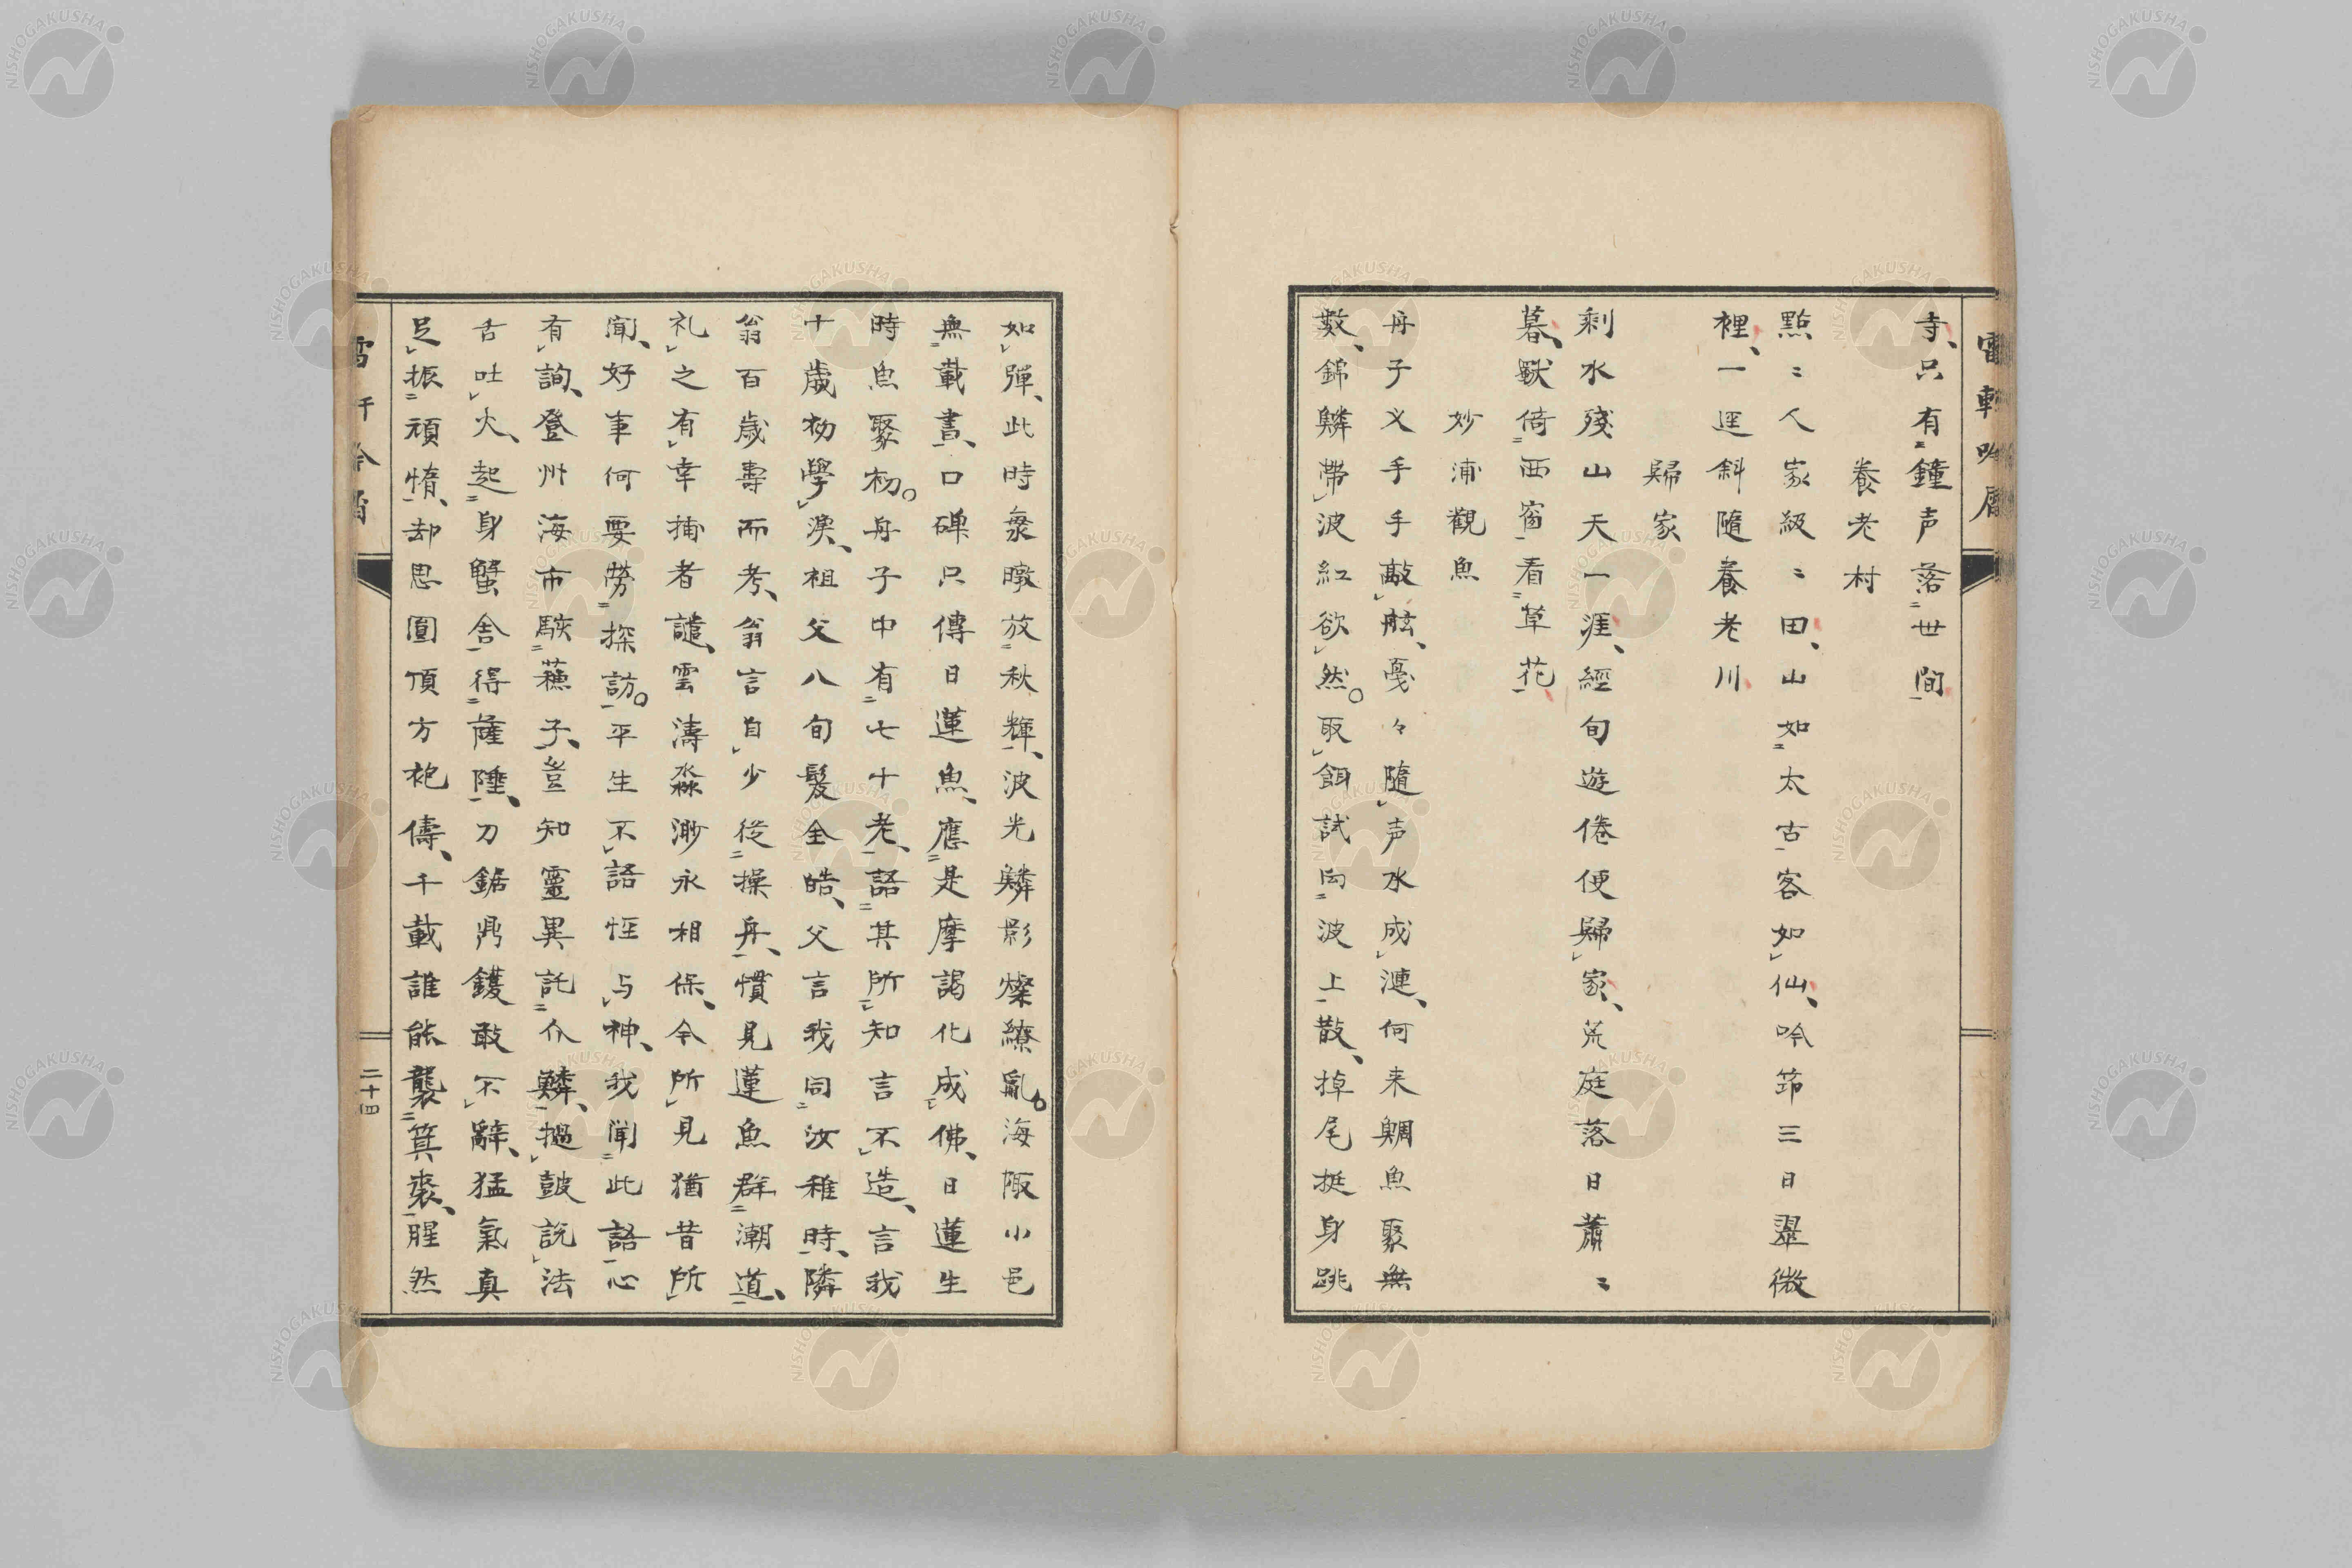 寺、只有鐘声落世間
養老村
點〻人家級〻田、山如太古客如仙、吟筇三日翠微
裡、一逕斜隨養老川
歸家
剩水殘山天一涯、經旬遊倦便歸家、荒庭落日蕭〻
暮、獸倚西窗看草花
妙浦觀魚
舟子叉手手敲舷、戞々隨声水成漣、何来鯛魚聚無
數、錦鱗帶波紅欲然。取餌試向波上散、掉尾挺身跳
如彈、此時衆暾放秋輝、波光鱗影燦繚亂。海陬小邑
無載書、口碑只傳日蓮魚、應是摩謁化成佛、日蓮生
時魚聚初。舟子中有七十老、語其所知言不造、言我
十歲初學漁、祖父八旬髮全皓、父言我同汝稚時、隣
翁百歲壽而考、翁言自少從操舟、慣見蓮魚群潮道、
礼之有幸捕者譴、雲濤淼渺永相保、今所見猶昔所
聞、好事何要勞探訪。平生不語怪与神、我聞此語心
有詢、登州海市駭蘓子、豈知靈異託介鱗、撾鼓說法
舌吐火、起身蟹舍得薩埵、刀鋸鼎鑊敢不辭、猛氣真
足振頑惰、却思圓頂方袍儔、千載誰能襲箕裘、腥然
二十四